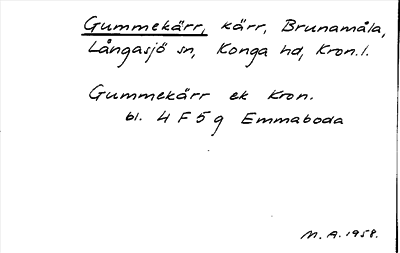 Gummekärr, kärr, Brunamåla,
Långasjö sn, Konga hd, Kron. l.
Gummekärr ek Kron.
bl. 4 F 5 g Emmaboda
M. A. 1958.